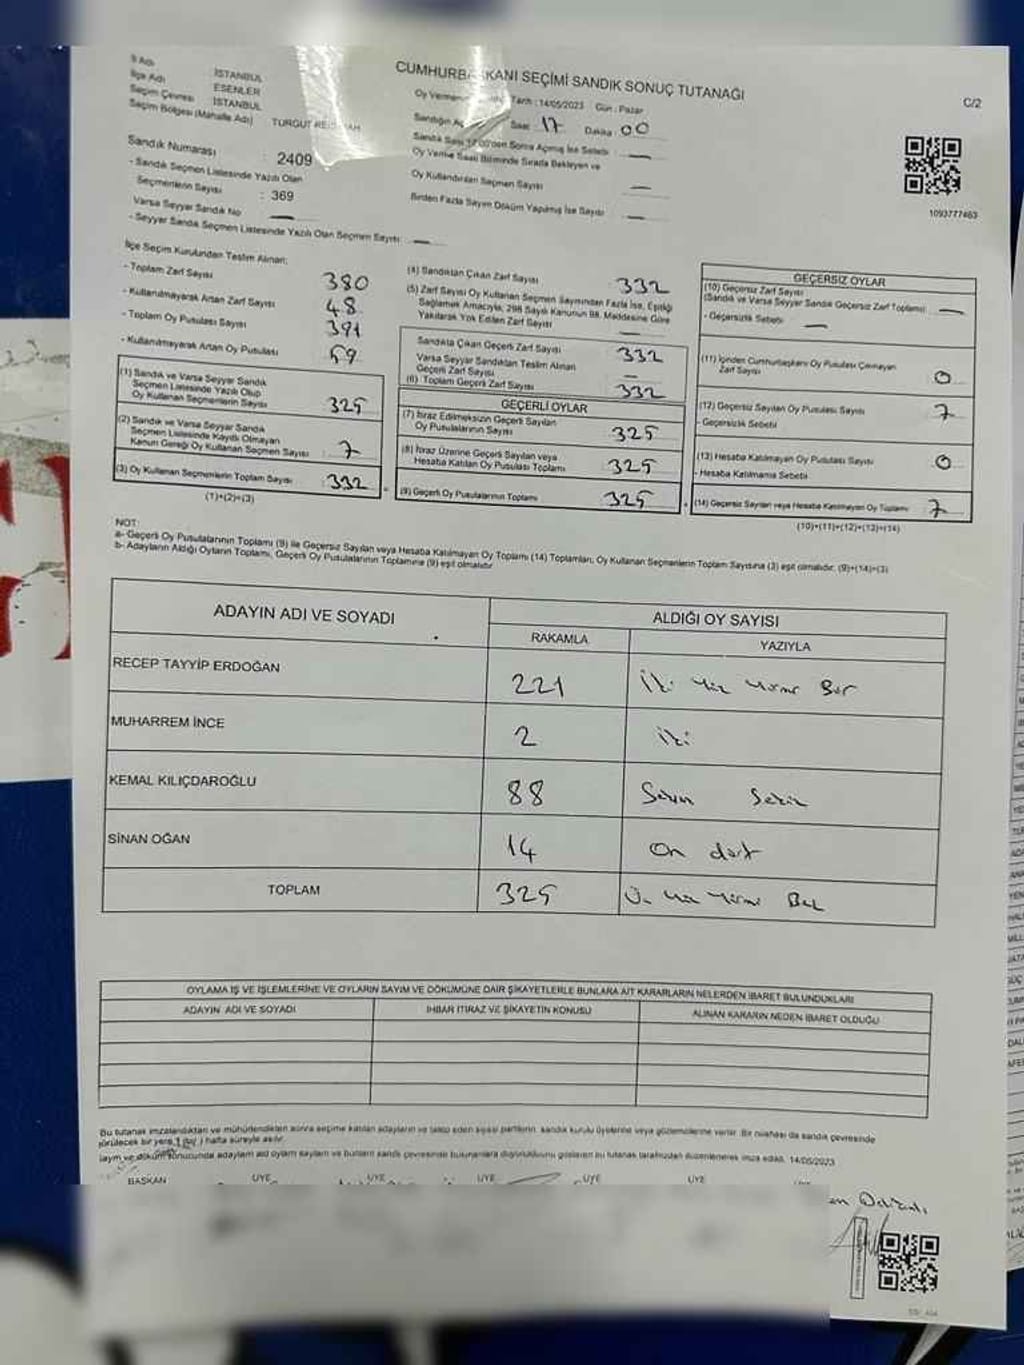 CUMHURBAŞKANI SEÇİMİ SANDIK SONUÇ TUTANAĞI
C/2
İl Adı İSTANBUL
İlçe Adı ESENLER
Seçim Çevresi İSTANBUL
Seçim Bölgesi (Mahalle Adı) TURGUT REİS
Tarih : 14/05/2023 Gün : Pazar
Saat 17 Dakika : 00
Sandık Numarası : 2409
- Sandık Seçmen Listesinde Yazılı Olan
Seçmenlerin Sayısı : 369
Varsa Seyyar Sandık No —
- Seyyar Sandık Seçmen Listesinde Yazılı Olan Seçmen Sayısı: —
Sandık Saat 17.00'den Sonra Açılmış İse Sebebi : —
Oy Verme Saati Bitiminde Sırada Bekleyen ve
Oy Kullandırılan Seçmen Sayısı —
Birden Fazla Sayım Döküm Yapılmış İse Sayısı : —
1093777463
İlçe Seçim Kurulundan Teslim Alınan;
- Toplam Zarf Sayısı 380
- Kullanılmayarak Artan Zarf Sayısı 48
- Toplam Oy Pusulası Sayısı 391
- Kullanılmayarak Artan Oy Pusulası 59
(1) Sandık ve Varsa Seyyar Sandık
Seçmen Listesinde Yazılı Olup
Oy Kullanan Seçmenlerin Sayısı 325
(2) Sandık ve Varsa Seyyar Sandık
Seçmen Listesinde Kayıtlı Olmayan
Kanun Gereği Oy Kullanan Seçmen Sayısı : 7
(3) Oy Kullanan Seçmenlerin Toplam Sayısı : 332
(1)+(2)=(3)
(4) Sandıktan Çıkan Zarf Sayısı 332
(5) Zarf Sayısı Oy Kullanan Seçmen Sayısından Fazla İse, Eşitliği
Sağlamak Amacıyla, 298 Sayılı Kanunun 98. Maddesine Göre
Yakılarak Yok Edilen Zarf Sayısı —
Sandıkta Çıkan Geçerli Zarf Sayısı 332
Varsa Seyyar Sandıktan Teslim Alınan
Geçerli Zarf Sayısı —
(6) Toplam Geçerli Zarf Sayısı 332
GEÇERLİ OYLAR
(7) İtiraz Edilmeksizin Geçerli Sayılan
Oy Pusulalarının Sayısı 325
(8) İtiraz Üzerine Geçerli Sayılan veya
Hesaba Katılan Oy Pusulası Toplamı 325
(9) Geçerli Oy Pusulalarının Toplamı 325
GEÇERSİZ OYLAR
(10) Geçersiz Zarf Sayısı
(Sandık ve Varsa Seyyar Sandık Geçersiz Zarf Toplamı) —
- Geçersizlik Sebebi : —
(11) İçinden Cumhurbaşkanı Oy Pusulası Çıkmayan
Zarf Sayısı 0
(12) Geçersiz Sayılan Oy Pusulası Sayısı 7
- Geçersizlik Sebebi
(13) Hesaba Katılmayan Oy Pusulası Sayısı 0
- Hesaba Katılmama Sebebi
(14) Geçersiz Sayılan veya Hesaba Katılmayan Oy Toplamı 7
(10)+(11)+(12)+(13)=(14)
NOT:
a- Geçerli Oy Pusulalarının Toplamı (9) ile Geçersiz Sayılan veya Hesaba Katılmayan Oy Toplamı (14) Toplamları, Oy Kullanan Seçmenlerin Toplam Sayısına (3) eşit olmalıdır. (9)+(14)=(3)
b- Adayların Aldığı Oyların Toplamı, Geçerli Oy Pusulalarının Toplamına (9) eşit olmalıdır
ADAYIN ADI VE SOYADI ALDIĞI OY SAYISI
RAKAMLA YAZIYLA
RECEP TAYYİP ERDOĞAN 221 İki Yüz Yirmi Bir
MUHARREM İNCE 2 İki
KEMAL KILIÇDAROĞLU 88 Seksen Sekiz
SİNAN OĞAN 14 On dört
TOPLAM 325 Üç Yüz Yirmi Beş
OYLAMA İŞ VE İŞLEMLERİNE VE OYLARIN SAYIM VE DÖKÜMÜNE DAİR ŞİKAYETLERLE BUNLARA AİT KARARLARIN NELERDEN İBARET BULUNDUKLARI
ADAYIN ADI VE SOYADI İHBAR İTİRAZ VE ŞİKAYETİN KONUSU ALINAN KARARIN NEDEN İBARET OLDUĞU
Bu tutanak imzalandıktan ve mühürlendikten sonra seçime katılan adayların ve takip eden siyasi partilerin, sandık kurulu üyelerine veya gözlemcilerine verilir. Bir nüshası da sandık çevresinde
görülecek bir yere 1 (bir) hafta süreyle asılır.
14/05/2023
BAŞKAN ÜYE ÜYE ÜYE ÜYE ÜYE